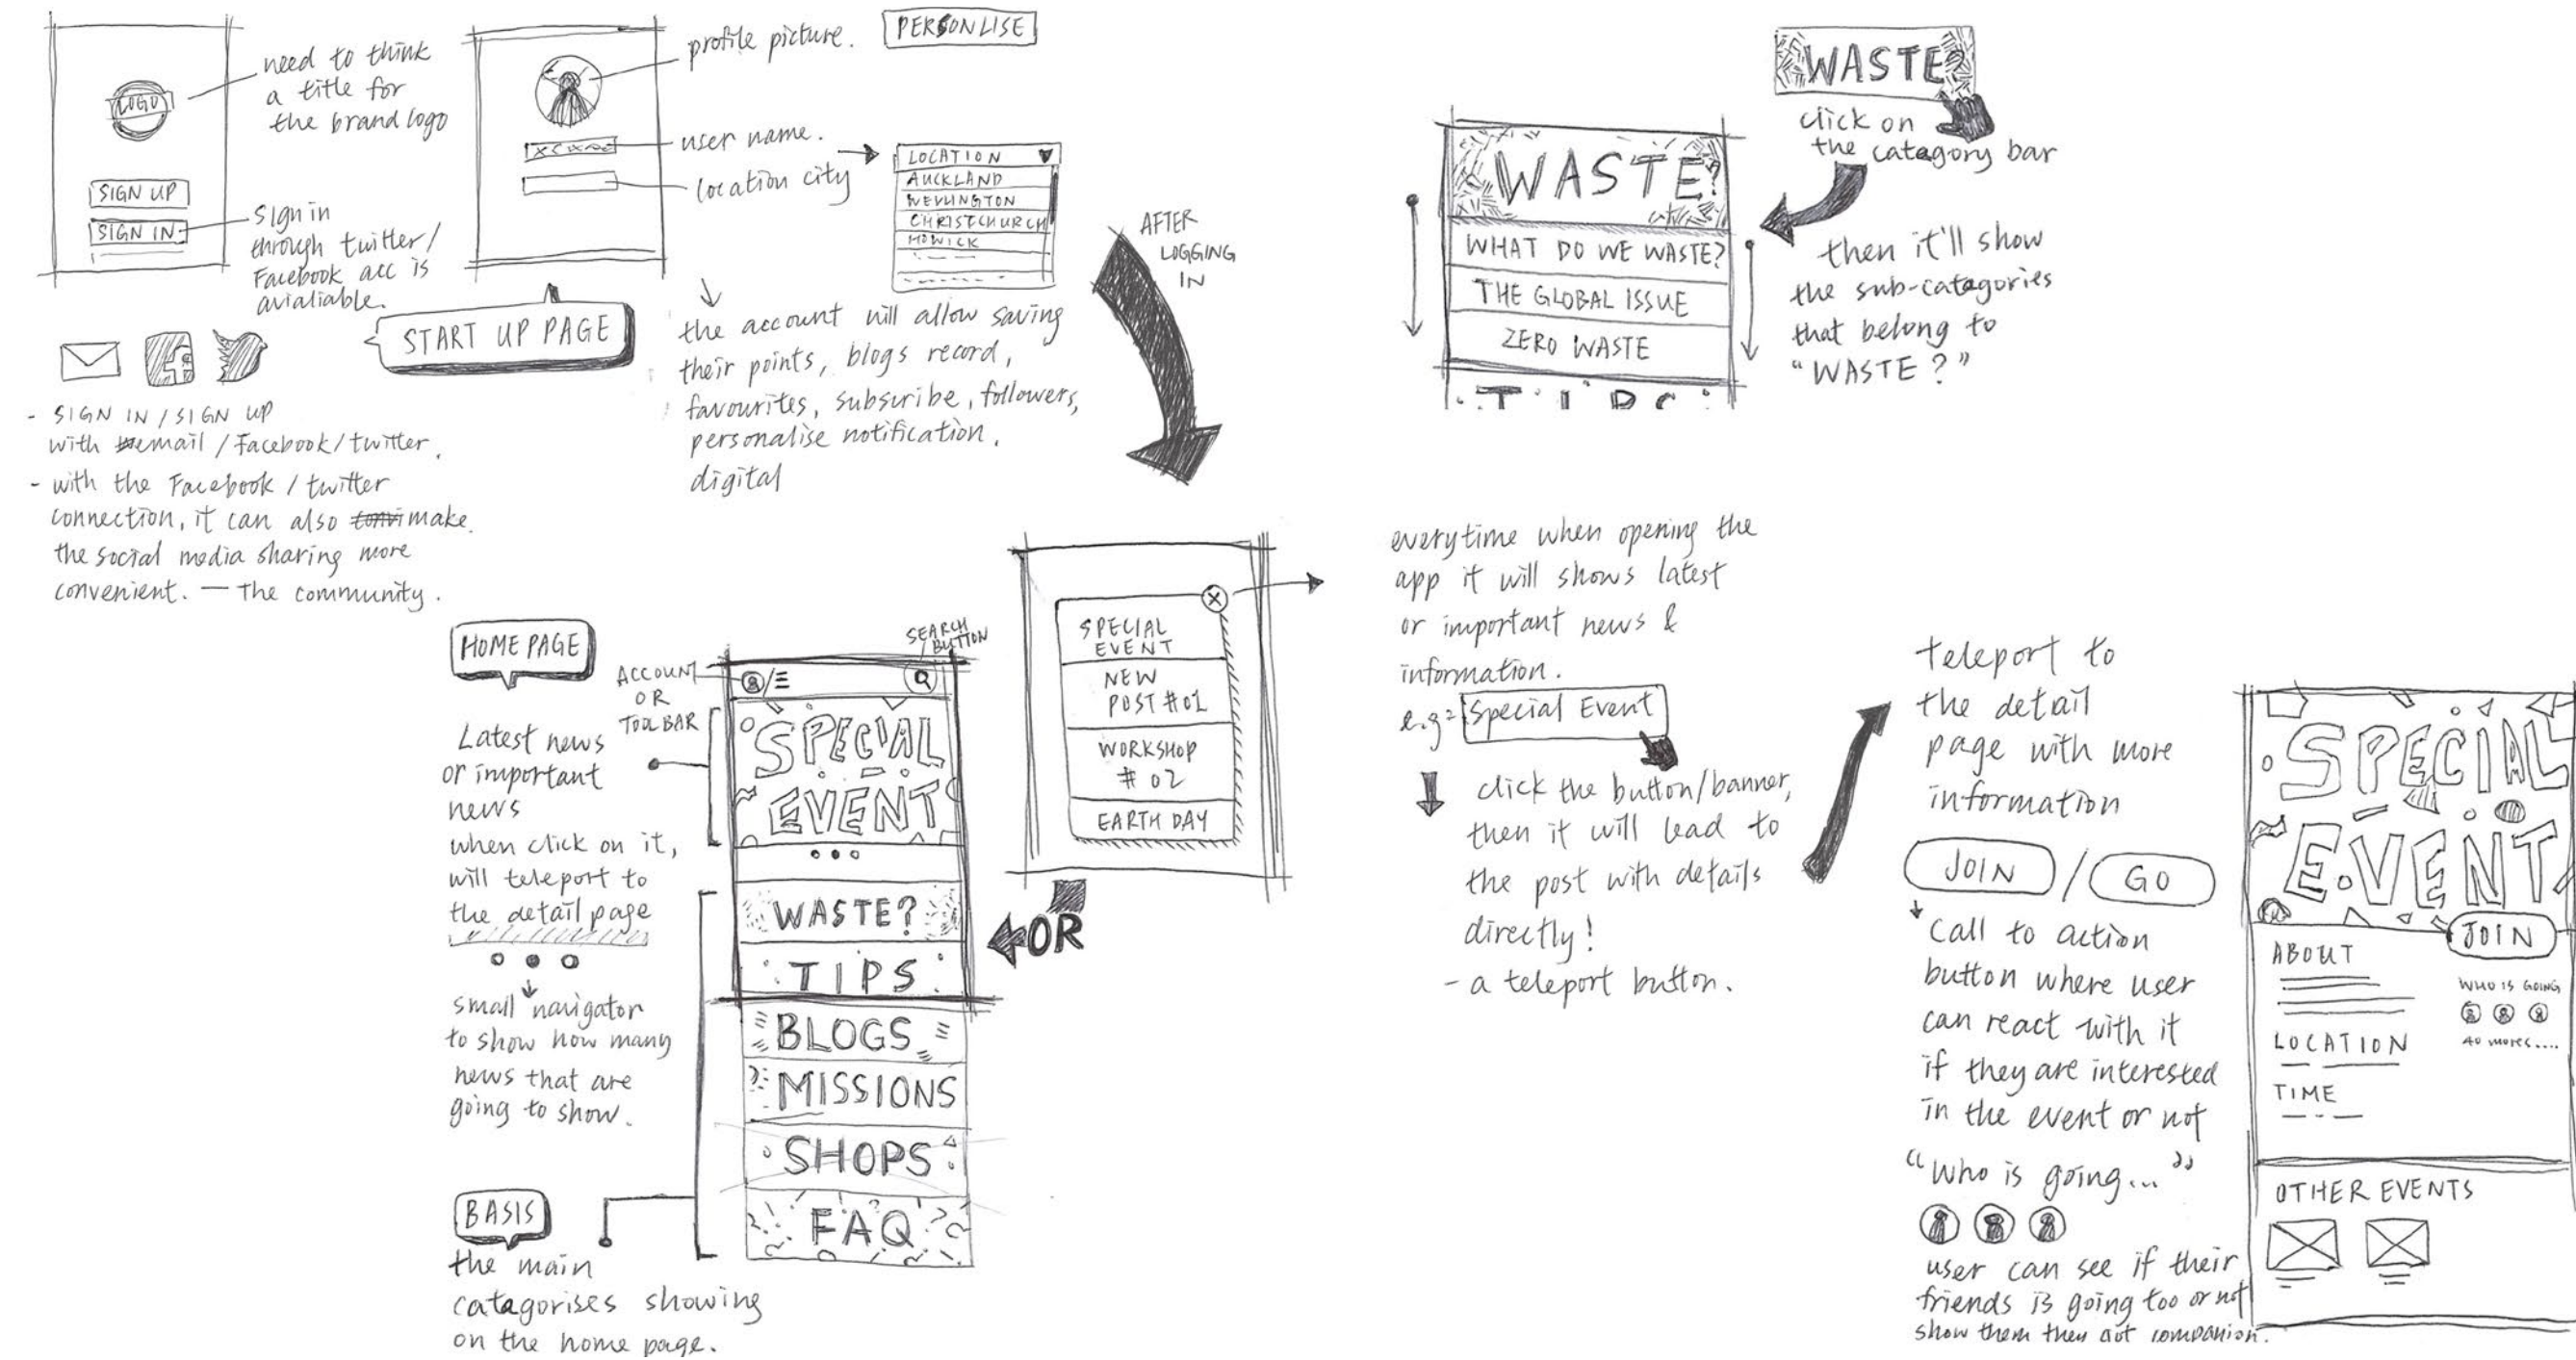 LOGO
need to think
a title for
the brand logo
SIGN UP
SIGN IN
sign in
through twitter/
Facebook acc is
avialiable.
START UP PAGE
- SIGN IN / SIGN UP
with email / Facebook / twitter.
- with the Facebook / twitter
connection, it can also make
the social media sharing more
convenient. — The community.
profile picture.
PERSONLISE
user name.
location city
LOCATION
AUCKLAND
WELLINGTON
CHRISTCHURCH
HOWICK
the account will allow saving
their points, blogs record,
favourites, subscribe, followers,
personalise notification.
digital
AFTER
LOGGING
IN
WASTE?
click on
the catagory bar
WASTE?
WHAT DO WE WASTE?
THE GLOBAL ISSUE
ZERO WASTE
TIPS
then it'll show
the sub-categories
that belong to
"WASTE?"
HOME PAGE
ACCOUNT
OR
TOOLBAR
SEARCH
BUTTON
Latest news
or important
news
when click on it,
will teleport to
the detail page
small navigator
to show how many
news that are
going to show.
SPECIAL
EVENT
WASTE?
TIPS
BLOGS
MISSIONS
SHOPS
FAQ
BASIS
the main
catagorises showing
on the home page.
SPECIAL
EVENT
NEW
POST #01
WORKSHOP
# 02
EARTH DAY
OR
everytime when opening the
app it will shows latest
or important news &
information.
e.g= Special Event
click the button/banner,
then it will lead to
the post with details
directly!
- a teleport button.
teleport to
the detail
page with more
information
JOIN / GO
call to action
button where user
can react with it
if they are interested
in the event or not
"Who is going..."
user can see if their
friends is going too or not
show them they companion.
SPECIAL
EVENT
JOIN
ABOUT
WHO IS GOING
40 mores....
LOCATION
TIME
OTHER EVENTS